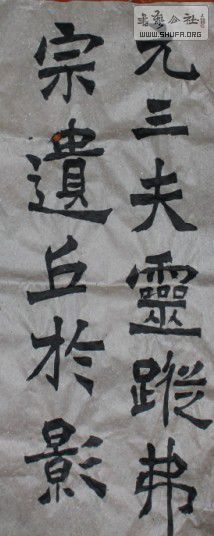 元三夫靈蹤弗
宗遺丘於影
書藝公社
WWW.SHUFA.ORG